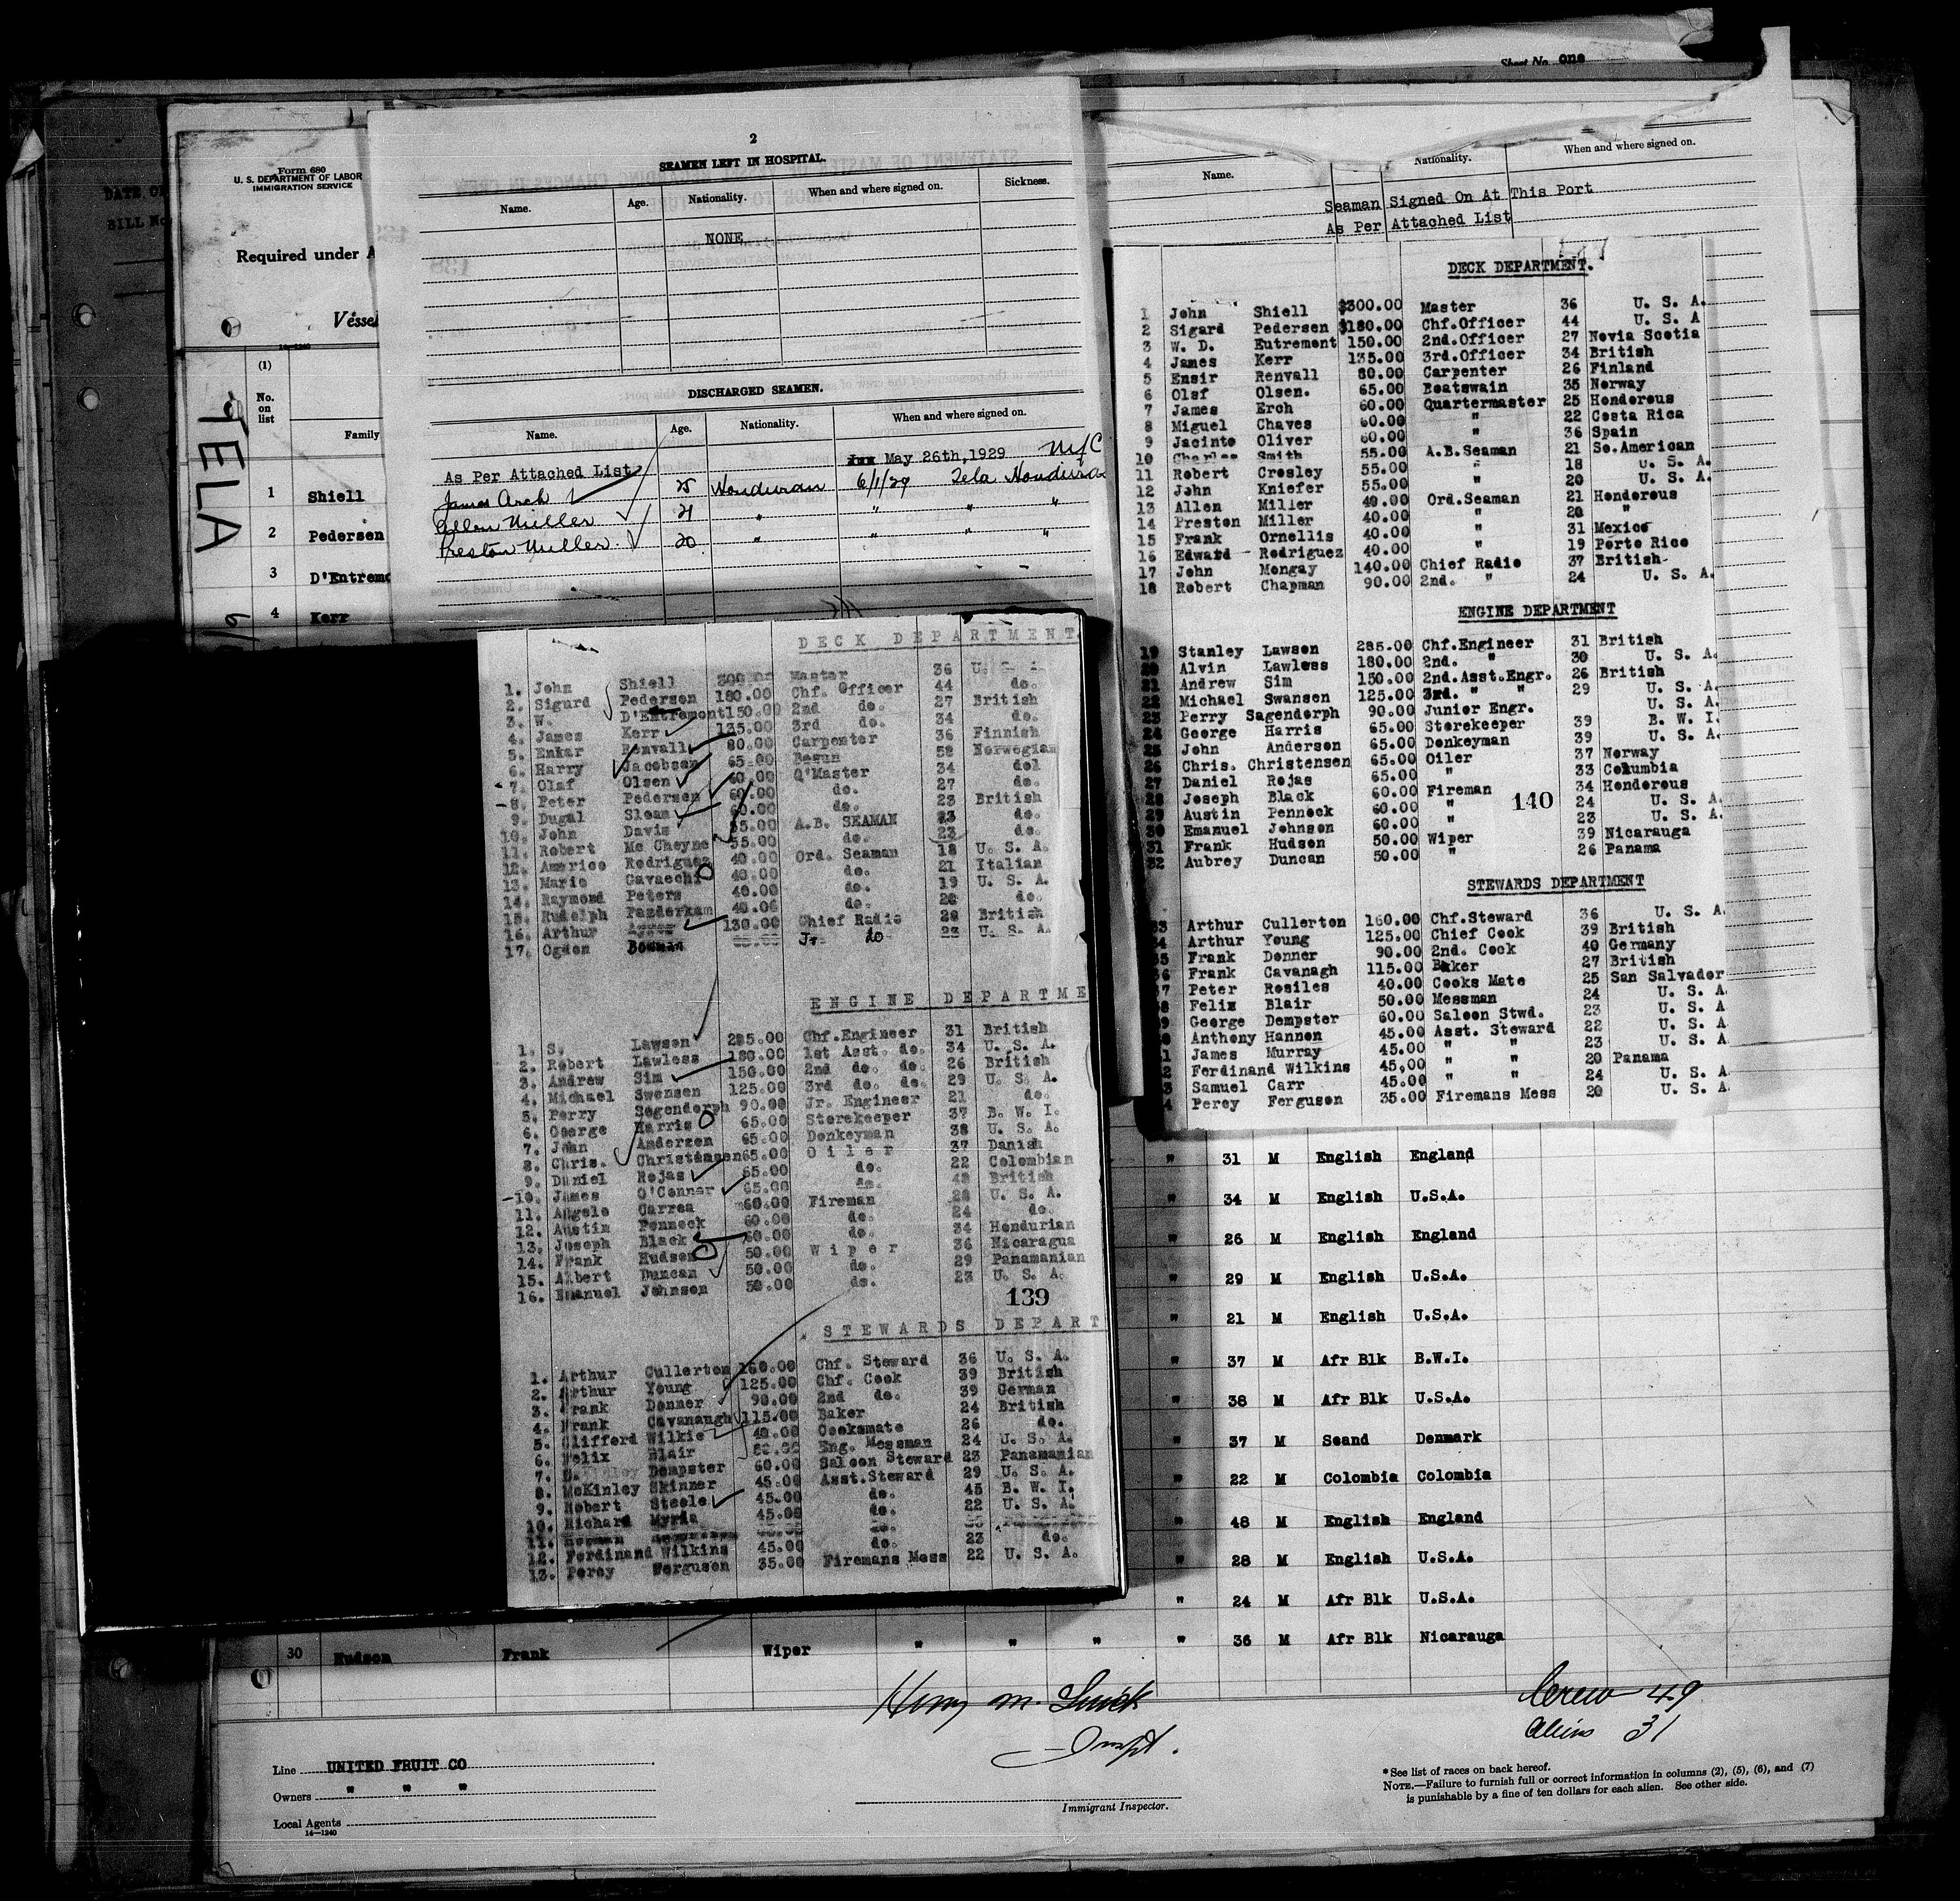 Sheet No. one
DATE OF
BILL No
Form 680
U. S. DEPARTMENT OF LABOR
IMMIGRATION SERVICE
Required under A
Vessel
14—1240
(1)
No.
on
list
Family
TELA
1 Shiell
2 Pedersen
3 D'Entremo
4 Kerr
2
SEAMEN LEFT IN HOSPITAL.
Name. Age. Nationality. When and where signed on. Sickness.
NONE
DISCHARGED SEAMEN.
Name. Age. Nationality. When and where signed on.
As Per Attached List May 26th, 1929 NYC
James Arch 25 Honduran 6/1/29 Tela Honduras
Allen Miller 21 " " " "
Preston Miller 20 " " " "
Name. Nationality. When and where signed on.
Seaman Signed On At This Port
As Per Attached List
DECK DEPARTMENT.
1 John Shiell $300.00 Master 36 U. S. A.
2 Sigard Pedersen $180.00 Chf.Officer 44 U. S. A
3 W. D. Eutremont 150.00 2nd.Officer 27 Novia Scotia
4 James Kerr 135.00 3rd.Officer 34 British
5 Ensir Renvall 80.00 Carpenter 26 Finland
6 Olaf Olsen. 65.00 Boatswain 35 Norway
7 James Erch 60.00 Quartermaster 25 Honderous
8 Miguel Chaves 60.00 " 22 Costa Rica
9 Jacinto Oliver 60.00 " 36 Spain
10 Charles Smith 55.00 A.B.Seaman 21 So.American
11 Robert Crosley 55.00 " 18 U. S. A.
12 John Kniefer 55.00 " 20 U. S. A.
13 Allen Miller 40.00 Ord.Seaman 21 Honderous
14 Preston Miller 40.00 " 20 "
15 Frank Ornellis 40.00 " 31 Mexico
16 Edward Rodriguez 40.00 " 19 Porto Rico
17 John Mongay 140.00 Chief Radio 37 British
18 Robert Chapman 90.00 2nd. " 24 U. S. A.
ENGINE DEPARTMENT
19 Stanley Lawson 285.00 Chf.Engineer 31 British
20 Alvin Lawless 180.00 2nd. " 30 U. S. A.
21 Andrew Sim 150.00 2nd.Asst.Engr. 26 British
22 Michael Swansen 125.00 3rd. " " 29 U. S. A.
23 Perry Sagendorph 90.00 Junior Engr. U. S. A.
24 George Harris 65.00 Storekeeper 39 B. W. I.
25 John Anderson 65.00 Donkeyman 39 U. S. A.
26 Chris. Christensen 65.00 Oiler 37 Norway
27 Daniel Rojas 65.00 " 33 Columbia
28 Joseph Black 60.00 Fireman 34 Honderous
29 Austin Pennock 60.00 " 24 U. S. A.
30 Emanuel Johnson 60.00 " 23 U. S. A.
31 Frank Hudson 50.00 Wiper 39 Nicarauga
32 Aubrey Duncan 50.00 " 26 Panama
140
STEWARDS DEPARTMENT
33 Arthur Cullerton 160.00 Chf.Steward 36 U. S. A.
34 Arthur Young 125.00 Chief Cook 39 British
35 Frank Donner 90.00 2nd. Cook 40 Germany
36 Frank Cavanagh 115.00 Baker 27 British
37 Peter Rosiles 40.00 Cooks Mate 25 San Salvador
38 Felix Blair 50.00 Messman 24 U. S. A.
39 George Dempster 60.00 Saloon Stwd. 23 U. S. A
0 Anthony Hannon 45.00 Asst. Steward 22 U. S. A
1 James Murray 45.00 " " 23 U. S. A
2 Ferdinand Wilkins 45,00 " " 20 Panama
3 Samuel Carr 45.00 " " 24 U. S. A.
4 Percy Ferguson 35.00 Firemans Mess 20 U. S. A
DECK DEPARTMENT
1. John Shiell 300.00 Master 36 U. S. A.
2. Sigurd Pedersen 180.00 Chf. Officer 44 do.
3. W. D'Entremont 150.00 2nd do. 27 British
4. James Kerr 135.00 3rd do. 34 do.
5. Enkar Renvall 80.00 Carpenter 36 Finnish
6. Harry Jacobsen 65.00 Bosun 58 Norwegian
7. Olaf Olsen 60.00 Q'Master 34 dol
8. Peter Pedersen 60.00 do. 27 do.
9. Dugal Sloan 60.00 do. 23 British
10. John Davis 55.00 A.B. SEAMAN 23 do.
11. Robert Mc Cheyne 55.00 do. 23 do.
12. Americo Rodriguez 40.00 Ord. Seaman 18 U. S. A.
13. Mario Cavaechi 40.00 do. 21 Italian
14. Raymond Peters 40.00 do. 19 U. S. A.
15. Rudolph Panderkam 40.00 do. 20 do.
16. Arthur 130.00 Chief Radio 20 British
17. Ogden Bowman Jr. do 23 U. S. A.
ENGINE DEPARTME
1. S. Lawson 285.00 Chf.Engineer 31 British
2. Robert Lawless 180.00 1st Asst. do. 34 U. S. A.
3. Andrew Sim 150.00 2nd do. do. 26 British
4. Michael Swensen 125.00 3rd do. do. 29 U. S. A.
5. Perry Segendorph 90.00 Jr. Engineer 21 do.
6. George Harris 65.00 Storekeeper 37 B. W. I.
7. John Andersen 65.00 Donkeyman 38 U. S. A.
8. Chris. Christensen 65.00 Oiler 37 Danish
9. Daniel Rojas 65.00 do. 22 Colombian
10. James O'Conner 65.00 do. 48 British
11. Angelo Carrea 60.00 Fireman 28 U. S. A.
12. Austin Pennock 60.00 do. 24 do.
13. Joseph Black 60.00 do. 34 Hondurian
14. Frank Hudson 50.00 Wiper 36 Nicaragua
15. Albert Duncan 50.00 do. 29 Panamanian
16. Emanuel Johnson 50.00 do. 23 U. S. A.
139
STEWARDS DEPART
1. Arthur Cullerton 160.00 Chf. Steward 36 U. S. A.
2. Arthur Young 125.00 Chf. Cook 39 British
3. Frank Donner 90.00 2nd do. 39 German
4. Frank Cavanaugh 115.00 Baker 24 British
5. Clifford Wilkie 40.00 Cooksmate 26 do.
6. Felix Blair Eng. Messman 24 U. S. A.
7. Dempster 60.00 Saloon Steward 23 Panamanian
8. McKinley Skinner 45.00 Asst.Steward 29 U. S. A.
9. Robert Steele 45.00 do. 45 B. W. I.
10. Richard Myria 45.00 do. 22 U. S. A.
11. do.
12. Ferdinand Wilkins 45.00 do. 23 do.
13. Percy Ferguson 35.00 Firemans Mess 22 U. S. A.
" 31 M English England
" 34 M English U.S.A.
" 26 M English England
" 29 M English U.S.A.
" 21 M English U.S.A.
" 37 M Afr Blk B.W.I.
" 38 M Afr Blk U.S.A.
" 37 M Scand Denmark
" 22 M Colombia Colombia
" 48 M English England
" 28 M English U.S.A.
" 24 M Afr Blk U.S.A.
30 Hudson Frank Wiper " " " " 36 M Afr Blk Nicarauga
Inspt.
Crew 49
Aliens 31
Line UNITED FRUIT CO
Owners " " "
Local Agents
14—1240
Immigrant Inspector.
* See list of races on back hereof.
NOTE.—Failure to furnish full or correct information in columns (2), (5), (6), and (7)
is punishable by a fine of ten dollars for each alien. See other side.